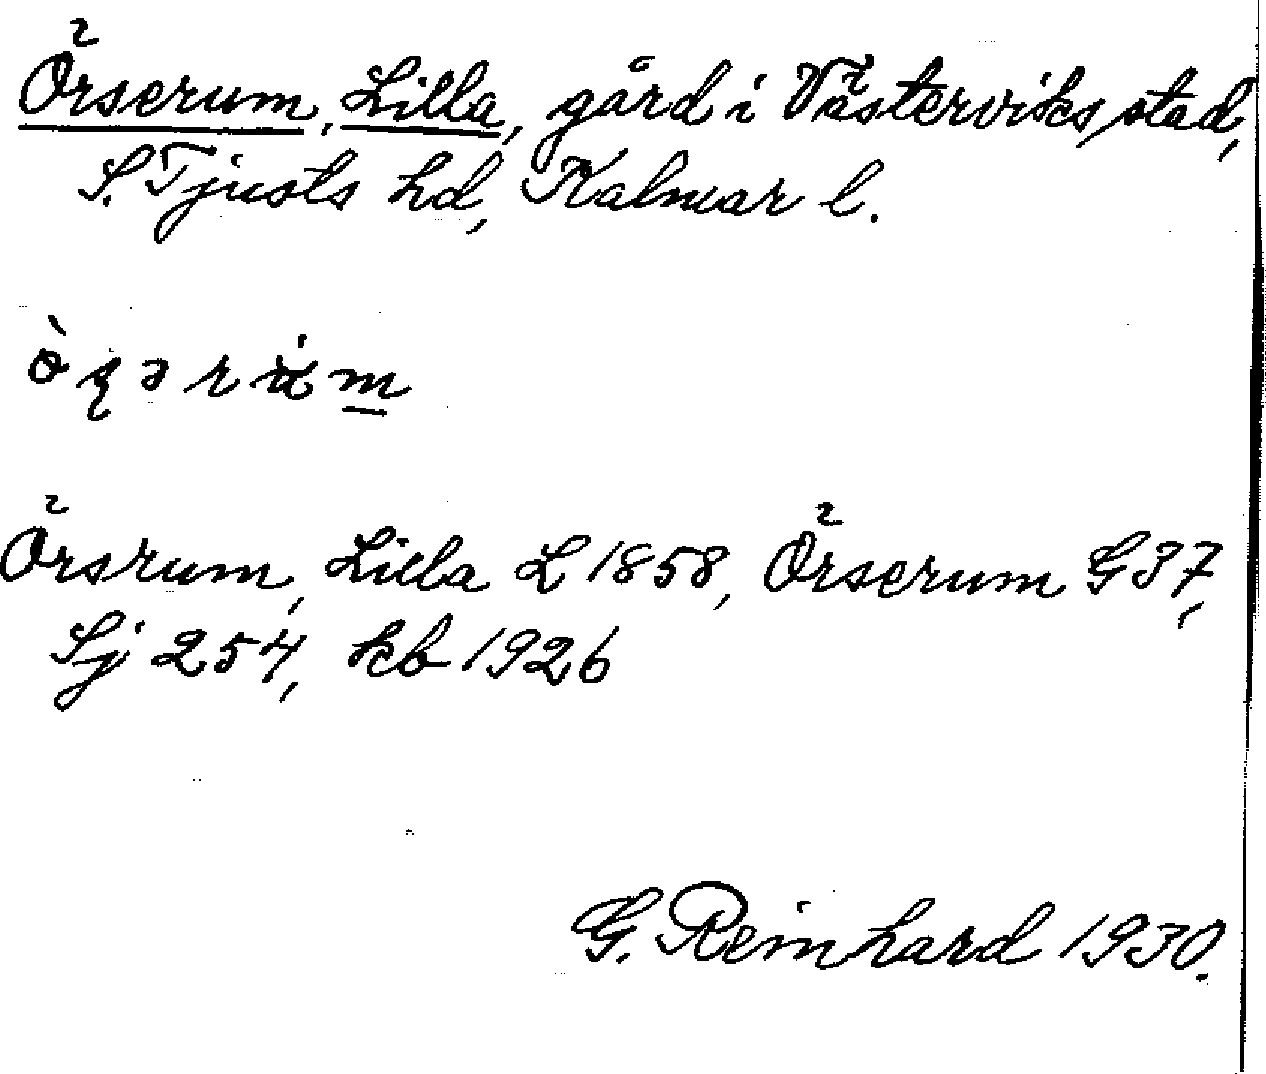 Örserum, Lilla, gård i Västerviks stad,
S. Tjusts hd, Kalmar l.
Örsrum, Lilla L 1858, Örserum G 37,
Sj 254, kb 1926
G. Reinhard 1930.